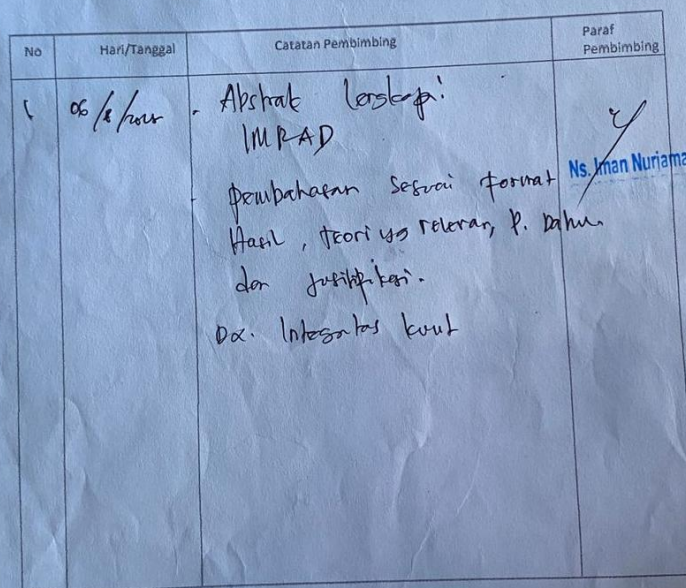 No Hari/Tanggal Catatan Pembimbing Paraf Pembimbing
- Abstrak lengkapi
IMRAD
- pembahasan sesuai format
Hasil, teori yg relevan, P. Dahu
dan justifikasi.
Dx. Integritas kulit
Ns. Iman Nuriama